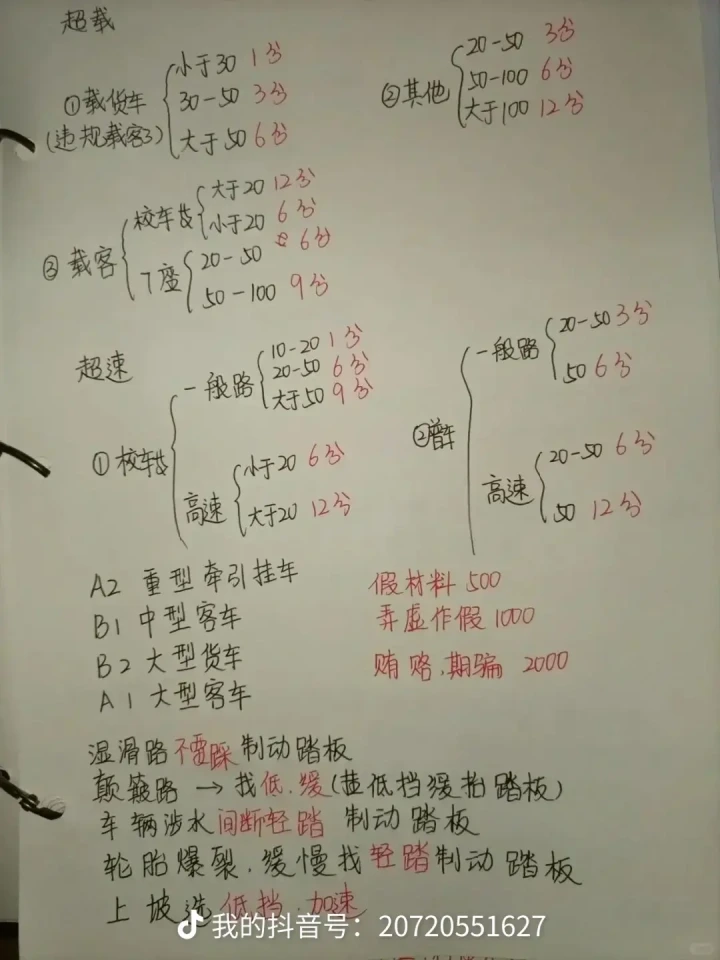 超载
①载货车
(违规载客3)
小于30 1分
30-50 3分
大于50 6分
②其他
20-50 3分
50-100 6分
大于100 12分
③载客
校车等
大于20 12分
小于20 6分
7座
20-50 6分
50-100 9分
超速
①校车等
一般路
10-20 1分
20-50 6分
大于50 9分
高速
小于20 6分
大于20 12分
②普车
一般路
20-50 3分
50 6分
高速
20-50 6分
50 12分
A2 重型牵引挂车
B1 中型客车
B2 大型货车
A1 大型客车
假材料 500
弄虚作假 1000
贿赂、期骗 2000
湿滑路 制动踏板
颠簸路 → 找低、缓(挂低挡缓抬踏板)
车辆涉水间断轻踏 制动踏板
轮胎爆裂、缓慢找轻踏制动踏板
上坡选低挡、加速
我的抖音号：20720551627